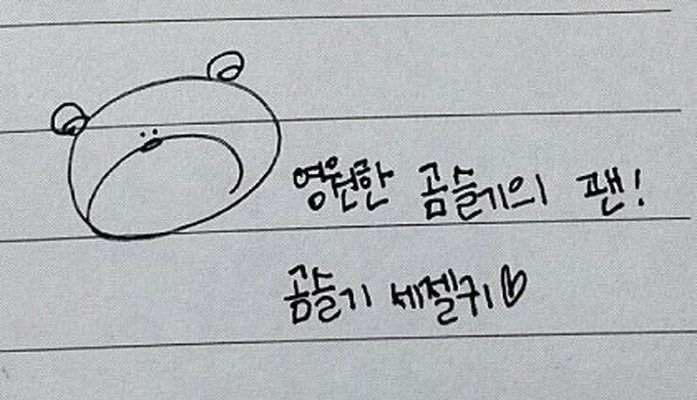 영원한 곰슬기의 팬!
곰슬기 세젤귀♡